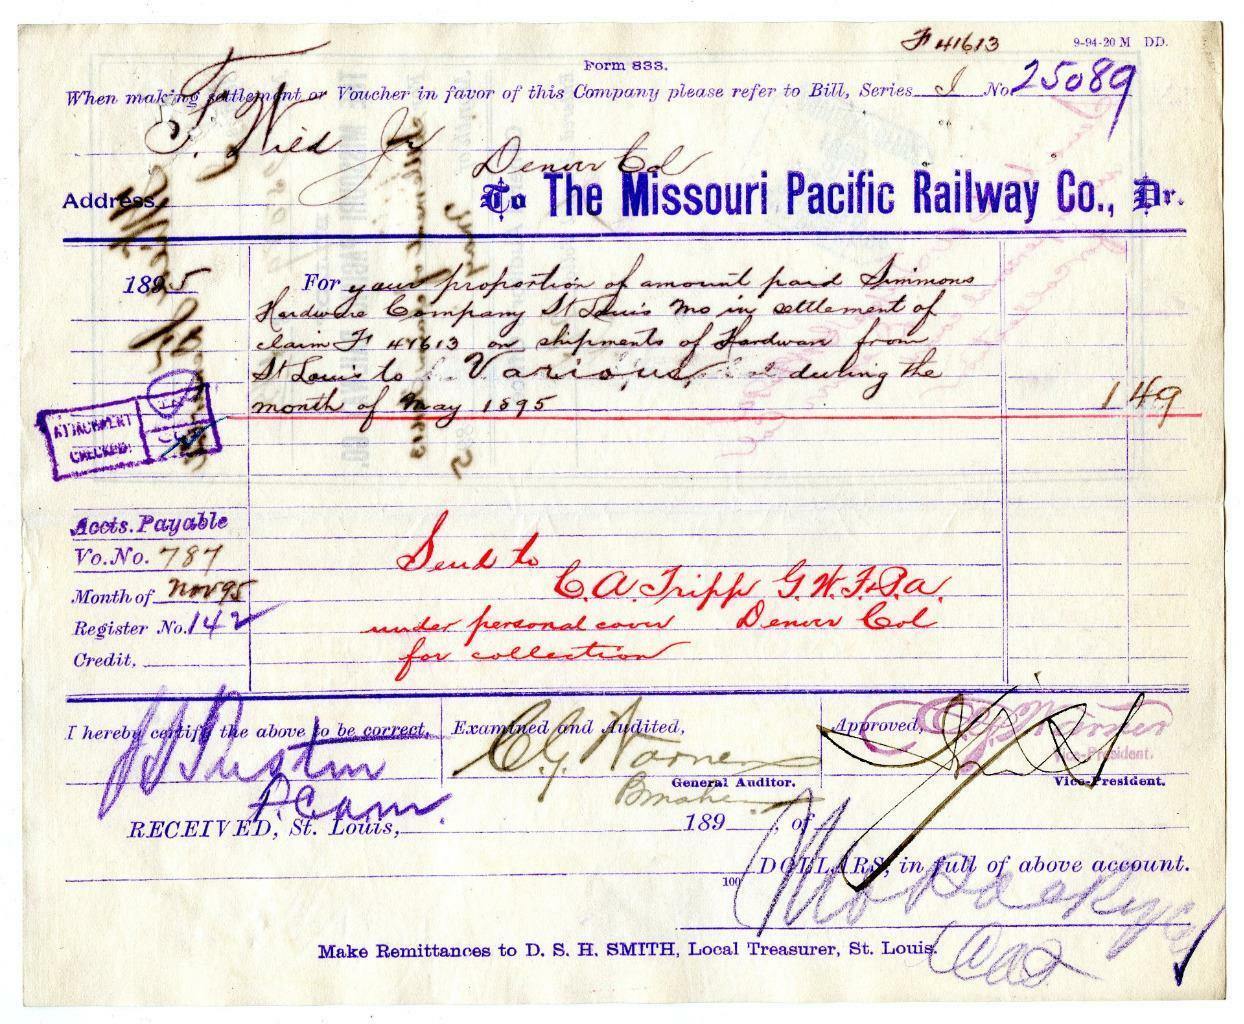 F 41613
9-94-20 M DD.
Form 833.
When making settlement or Voucher in favor of this Company please refer to Bill, Series I No. 25089
F. Wild Jr
Denver Col
Address, To The Missouri Pacific Railway Co., Dr.
1895 For your proportion of amount paid Simmons
Hardware Company St Louis Mo in settlement of
claim F 41613 on shipments of Hardware from
St Louis to Various, during the
month of May 1895 1 49
ATTACHMENT
CHECKED:
Accts. Payable
Vo. No. 787
Month of Nov 95
Register No. 142
Credit,
Send to
C. A. Tripp G. W. F. & P. A.
under personal cover Denver Col
for collection
I hereby certify the above to be correct, Examined and Audited, Approved,
C. G. Warner
General Auditor.
C. G. Warner
Vice-President.
Vice-President.
RECEIVED, St. Louis, 189 , of
100 DOLLARS, in full of above account.
Mo Pac Ry Co
Make Remittances to D. S. H. SMITH, Local Treasurer, St. Louis.